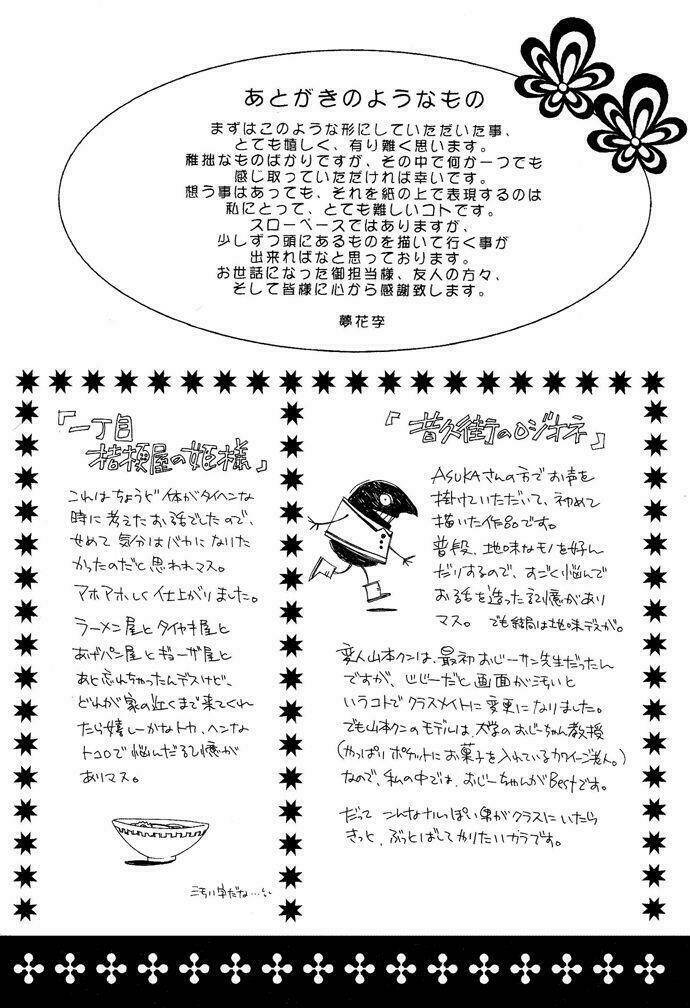 あとがきのようなもの
まずはこのような形にしていただいた事、
とても嬉しく、有り難く思います。
稚拙なものばかりですが、その中で何か一つでも
感じ取っていただければ幸いです。
想う事はあっても、それを紙の上で表現するのは
私にとって、とても難しいコトです。
スローペースではありますが、
少しずつ頭にあるものを描いて行く事が
出来ればなと思っております。
お世話になった御担当様、友人の方々、
そして皆様に心から感謝致します。
夢花李
『一丁目
桔梗屋の姫様』
これはちょうど体がタイヘンな
時に考えたお話でしたので、
せめて気分はバカになりた
かったのだと思われマス。
アホアホしく仕上がりました。
ラーメン屋とタイヤキ屋と
あげパン屋とギョーザ屋と
あと忘れちゃったんデスけど、
どれが家の近くまで来てくれ
たら嬉しーかなトカ、ヘンな
トコロで悩んだ記憶が
ありマス。
『音久街のロジオネ』
ASUKAさんの方でお声を
掛けていただいて、初めて
描いた作品です。
普段、地味なモノを好ん
だりするので、すごく悩んで
お話を造った記憶があり
マス。でも結局は地味デスが。
変人山本クンは、最初おじーサン先生だったん
ですが、じじーだと画面が汚いと
いうコトでクラスメイトに変更になりました。
でも山本クンのモデルは、大学のおじーちゃん教授
(やっぱりポケットにお菓子を入れているカワイージ老人。)
なので、私の中では、おじーちゃんがBestです。
だってこんなナルっぽい男がクラスにいたら
きっと、ぶっとばしてやりたいカラです。